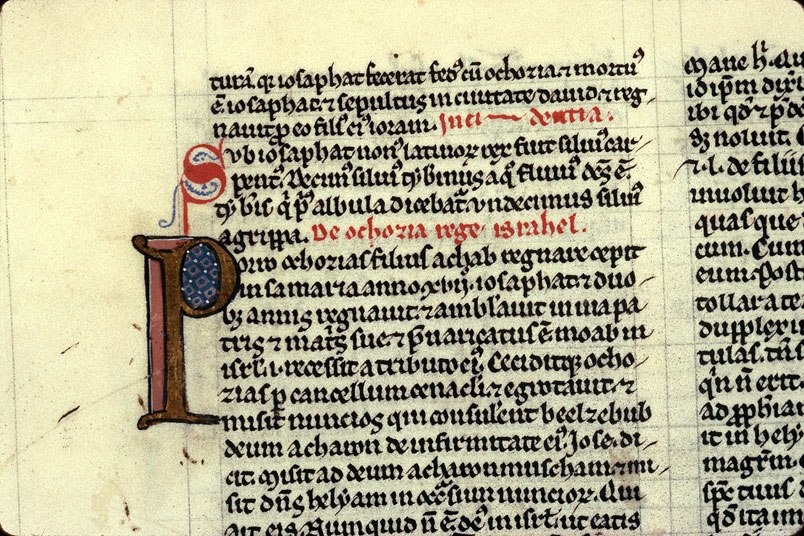 turā. qr iosaphat fecerat fed⁹ cū ochozia. ⁊ mortu⁹
ē iosaphat. ⁊ sepultus in ciuitate dauid. ⁊ reg-
nauit p eo fili⁹ ei⁹ ioram. Inci dentia.
Sub iosaphat non⁹ latinoꝝ rex fuit silui⁹ car-
pent⁹. Decim⁹ silui⁹ tyberinus a q̄ fluui⁹ dc̄s ē
tyb̄is q̄ p⁹ albula dicebat͛. Vndecimus silui⁹
agrippa. De ochozia rege israhel.
Porro ochozias filius achab regnare cepit
in samaria anno xvij. iosaphat. ⁊ duo-
bꝫ annis regnauit. ⁊ ambl'auit in uia pa
tris ⁊ mat͛s sue. ⁊ p̄uaricatus ē moab in
isrl̄. i. recessit a tributo ei⁹. Ceciditqꝫ ocho-
zias ꝑ cancellum cenacli. ⁊ egrotauit. ⁊
misit nuncios qui consulerent beelzebub
deum acharon de infirmitate ei⁹. Iose. di-
cit. Misit ad deum acharon muscham. ⁊ mi-
sit dn̄s helyam in occ͛sum nuncioꝝ. Qui
ait eis. Nunquid n̄ ē de⁹ in isrl̄. ut eatis
mane h͛. Qu
id ip̄m dixi
ibi qd̕ ⁊ p̄de
sꝫ noluit.
⁊. l. de filii
inuoluit h
quas que
cum. Cum
eum. Post
tollara te
dupplex
tulas. tn̄
qn̄ n̄ erit.
ad ꝓph̄ia
it in hely
magr̄m.
sp̄c tuus
qd̕ ita im